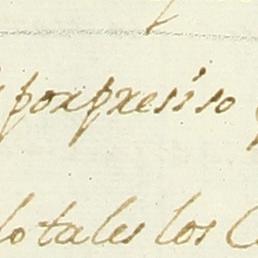 porpresiso
lo tales los